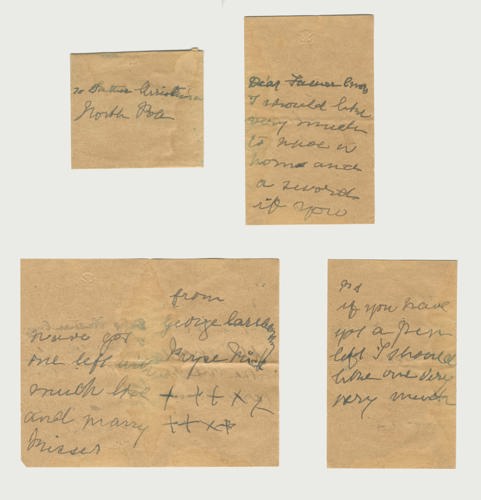 to Father Christmas
North Pole
Dear Farver Crismas
I should like
very much
to have a
horn and
a sword
if you
have got
one left wiv
much love
and marry
kisses
from
george
++++x+
++x+
PS
if you have
got a pen
left I should
like one very
very much